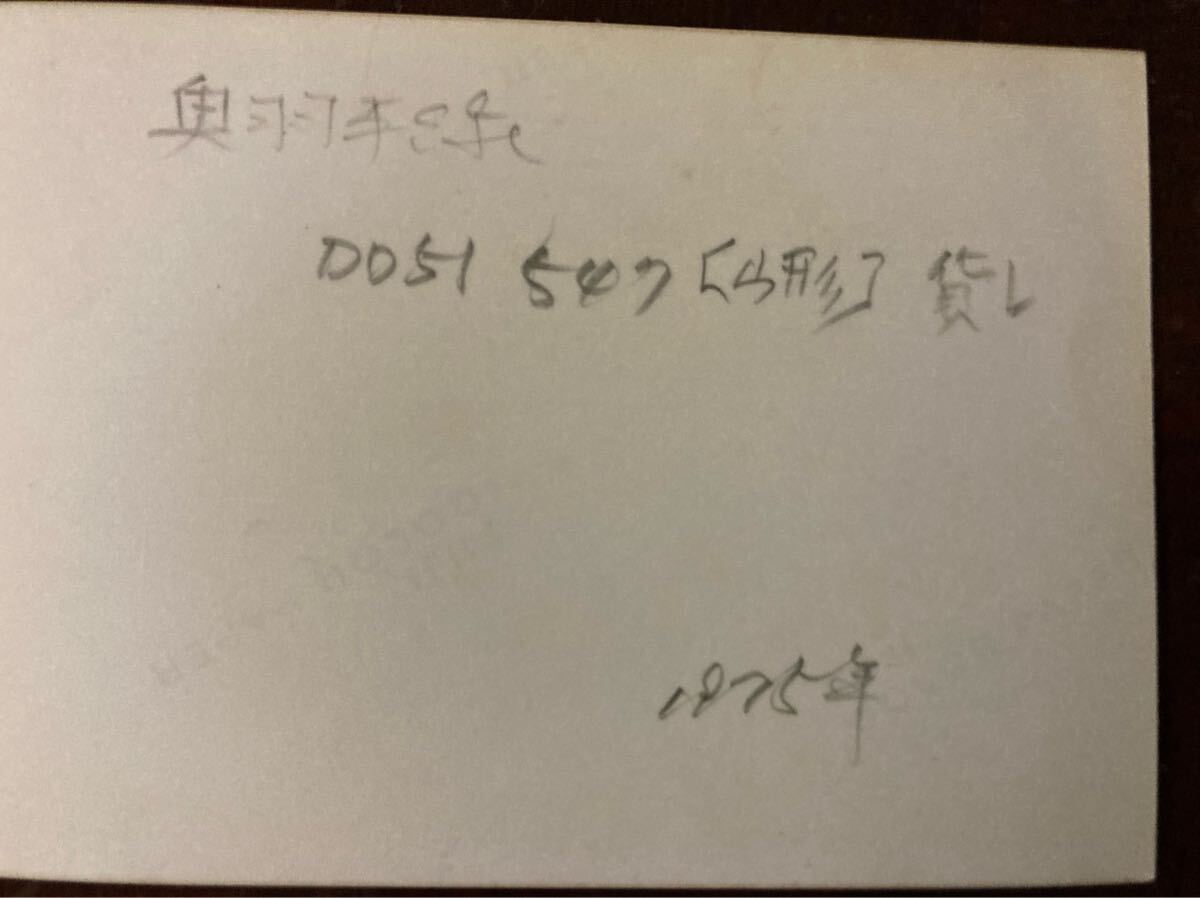 奥羽本線
DD51 547 [山形] 貨レ
1975年